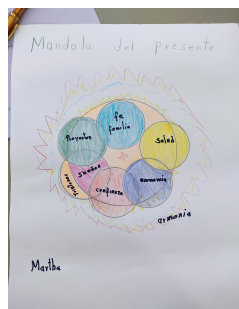 Mandala del presente
fe
familia
Proyectos
Salud
sueños
confianza
economia
armonia
Martha